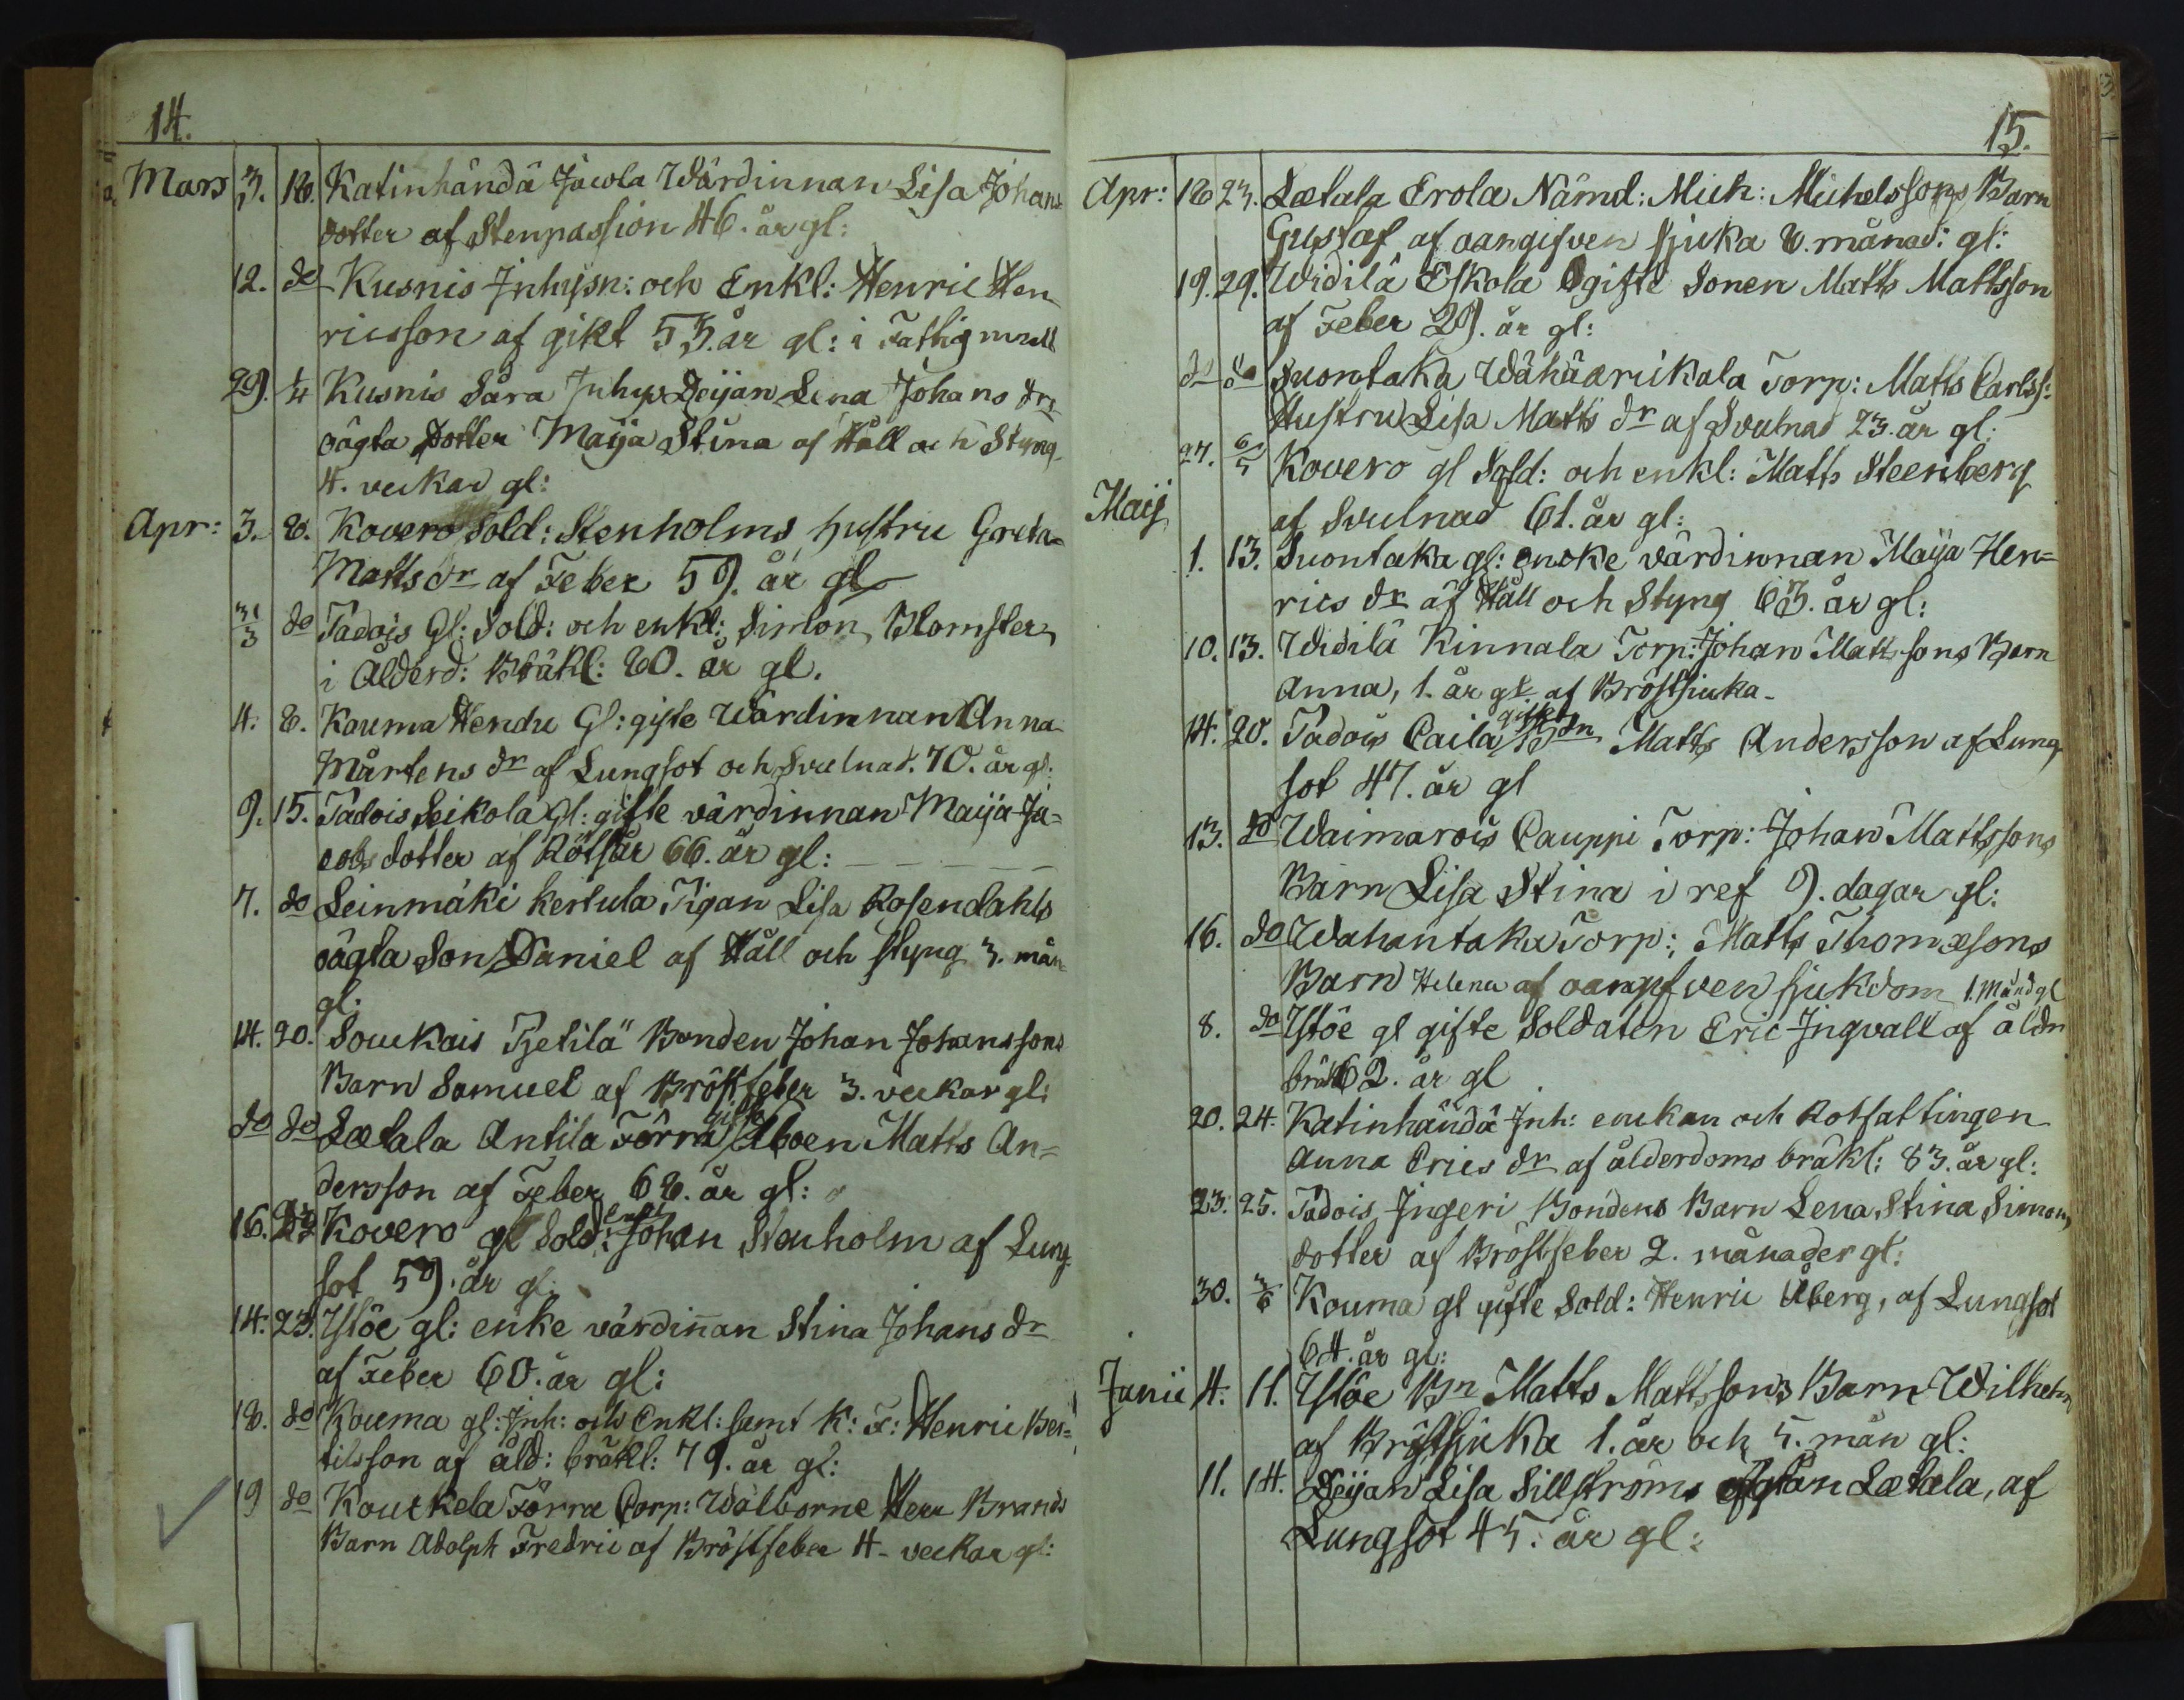 14.
Mars 3. 18. Katinhändä Jacola Wärdinnan Lisa Johans
dotter af Stenpassion 46. år gl:
12. do Kusnis Inhysn: och Enkl: Henric Hen
ricsson af gikt 53. år gl: i Fattig
29. 1/4 Kusnis Såra Inhys Peijan Lena Johans dr
oägta dotter Maija Stina af Håll och Styng
4. veckar gl:
Apr: 3. 8. Kovero Sold: Stenholms hustru Greta
Matts dr af Feber 59. år gl
31/3 do Tadois Gl: Sold: och enkl: Simon Blomster
i Ålderd: Bräkl: 80. år gl.
4. 8. Kouma Hendu Gl: gifte Wärdinnan Anna
Mårtens dr af Lungsot och Svulnad. 70. år gl:
9. 15. Tadois Seikola Gl: gifte värdinnan Maija Ja=
cobs dotter af Rötsår 66. år gl:
7. do Leinmäki kertula Pigan Lisa Rosendahls
oägta Son Daniel af Håll och styng 3. mån
gl:
14. 20. Soukais Pietilä Bonden Johan Johanssons
Barn Samuel af Bröstfeber 3. veckar gl:
do do Lætala Antila Förra gifte Åboen Matts An=
dersson af Feber 68. år gl:
16. 23 Kovero gl Sold: enkl Johan Stenholm af Lung
sot 59. år gl:
14. 23. Ystöe gl: enke värdiñan Stina Johans dr
af Feber 60. år gl:
18. do Kouma gl: Inh: och Enkl: samt K: F: Henric Ber=
tilsson af åld: bräkl: 79. år gl:
19 do Kouckela Förra Corp: Wälborne Herr Brands
Barn Adolph Fredric af Bröstfeber 4. veckar gl:
15.
Apr: 18 23. Lætala Erola Nämd: Mich: Michelssons Barn
Gustaf af oangifven sjuka 8. månad: gl:
19. 29. Widilä Eskola Ogifte Sonen Matts Mattsson
af Feber 29. år gl:
do do Suontaka Wähäarikala Torp: Matts Carlss:
Hustru Lisa Matts dr af Svulnad 23. år gl:
27. 6/5 Kovero gl Sold: och enkl: Matts Steenberg
Maij
af Svulnad 61. år gl:
1. 13. Suontaka gl: encke värdinnan Maija Hen=
rics dr af Håll och Styng 63. år gl:
10. 13. Widilä Kinnala Torp: Johan Mattssons Barn
Anna, 1. år gl af Bröstsiuka
14. 20. Tadois Caila gifte Matts Andersson af Lung
sot 47. år gl
13. do Waimarois Cauppi Torp: Johan Mattssons
Barn Lisa Stina i ref 9. dagar gl:
16. do Wahantaka Torp: Matts Thomæsons
Barn Helena af oangifven sjukdom 1. Månd gl
8. do Ystöe gl gifte Soldaten Eric Ingvall af åldn
bräkl 62. år gl
20. 24. Katinhändä Inh: enckan och Rotfattingen
Anna Erics dr af ålderdoms bräkl: 83. år gl:
23. 25. Tadois Ingeri Bondens Barn Lena Stina Simons
dotter af Bröstfeber 2. månader gl:
30. 3/6 Kouma gl gifte Sold: Henric Åberg, af Lungsot
64. år gl:
Junii 4. 11. Ystöe Bn Matts Mattssons Barn Wilhelm
af Bröstsjuka 1. år och 5. mån gl:
11. 14. Peijan Lisa Sillströms Lætala, af
Lungsot 45. år gl: